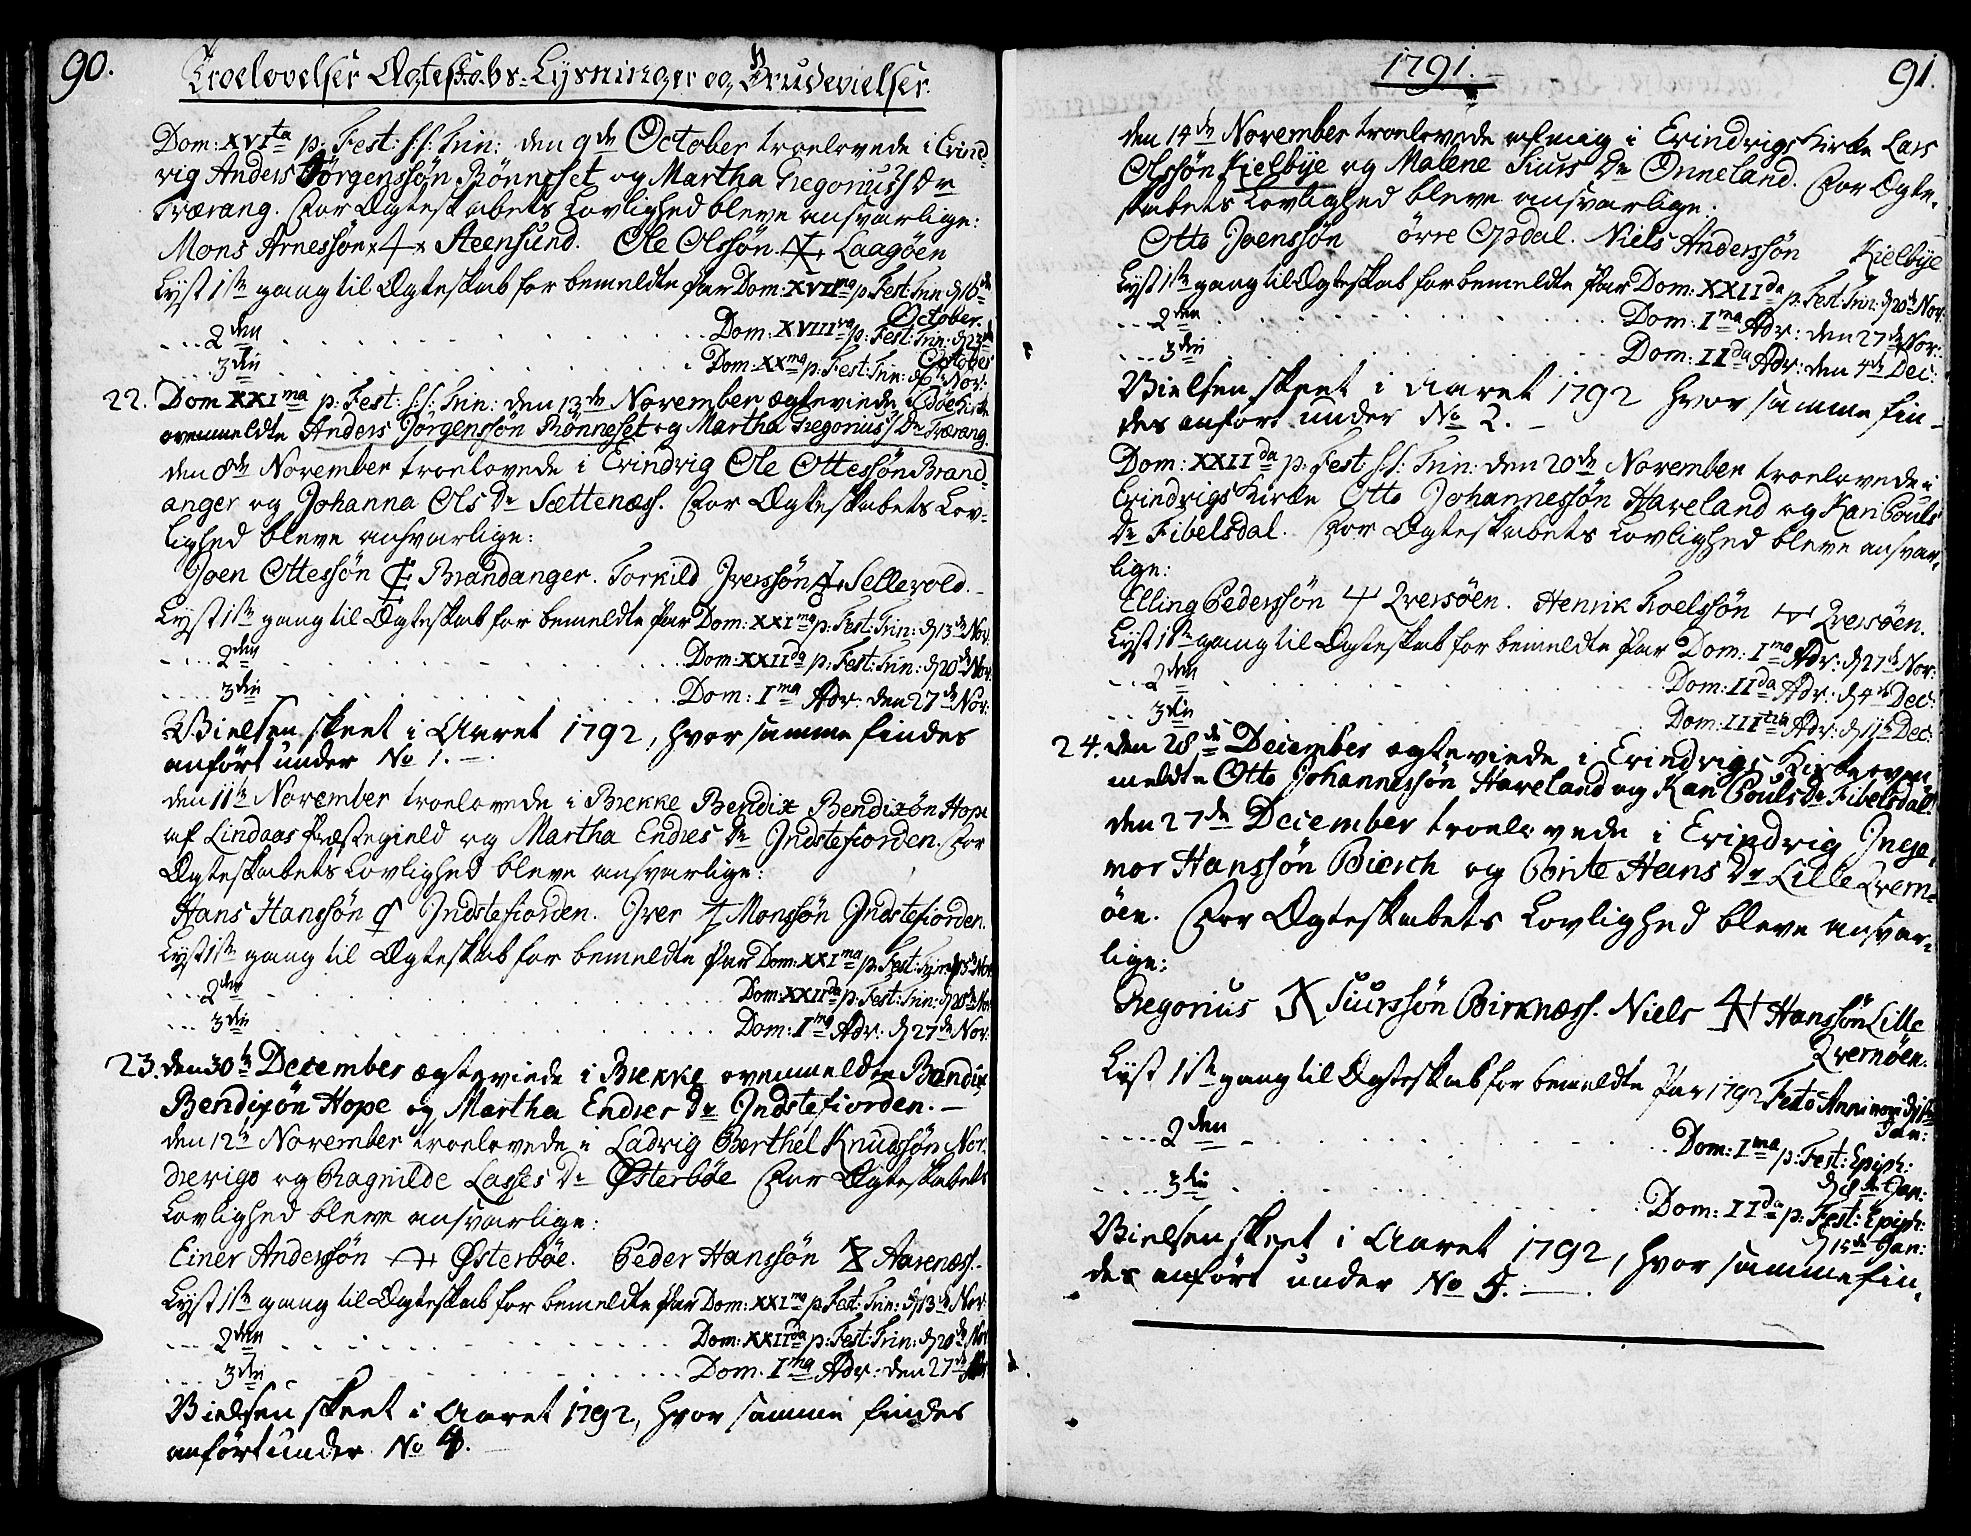 90.
Troelovelser Ægteskabs-Lysninger og Brudevielser.
Dom: XVIta p: Fest: S:S: Trin: den 9de October troelovede i Erind-
rig Anders Jörgenssön Rönneset og Martha Gregorius Dr
Træarang. For Ægteskabets Lovlighed bleve ansvarlige:
Mons Arnessön Steensund. Ole Olssön Laagöen
Lyst 1ste gang til Ægteskab for bemeldte Par Dom: XVIIma p: Fest: Trin: d 16de
October.
... 2den ... Dom: XVIIIva p: Fest: Trin: d 23de
October
... 3die ... Dom: XXma p: Fest: Trin: d 6te Nov:
22. Dom XXIma p: Fest: S:S: Trin: den 13de November ægteviede i Eidöe Kirke
ovenmeldte Anders Jörgenssön Rönneset og Martha Gregorius Dr Træarang.
den 8de November troelovede i Erindrig Ole Ottessön Brand-
anger og Johanna Ols Dr Sættenæss. For Ægteskabets Lov-
lighed bleve ansvarlige:
Joen Ottessön Brandanger. Torkild Iverssön Sellevold.
Lyst 1ste gang til Ægteskab for bemeldte Par Dom: XXIma p: Fest: Trin: d 13de Nov.
... 2den ... Dom: XXIIda p: Fest: Trin: d 20de Nov.
... 3die ... Dom: Ima Adv: den 27de Nov:
Vielsen skeet i Aaret 1792, hvor samme findes
anfört under No 1.
den 11te November troelovede i Brekke Bendix Bendixön Hope
af Lindaas Præstegield og Martha Endres Dr Indstefiorden. For
Ægteskabets Lovlighed bleve ansvarlige:
Hans Hanssön Indstefiorden. Iver Monssön Indstefiorden.
Lyst 1ste gang til Ægteskab for bemeldte Par Dom: XXIma p: Fest: Trin: d 13de Nov
... 2den ... Dom: XXIIda p: Fest: Trin: d 20de Nov
... 3die ... Dom: Ima Adv: d 27de Nov:
23. den 30te December ægteviede i Brekke ovenmeldte Bendix
Bendixön Hope og Martha Endres Dr Indstefiorden.
den 12te November troelovede i Ladvig Berthel Knudssön Nor-
drevigs og Ragnilde Lasses Dr Østerböe For Ægteskabets
Lovlighed bleve ansvarlige:
Einer Anderssön Østerböe. Peder Hanssön Aarenæss.
Lyst 1ste gang til Ægteskab for bemeldte Par Dom: XXIma p: Fest: Trin: d 13de Nov:
... 2den ... Dom: XXIIda p: Fest: Trin: d 20de Nov
... 3die ... Dom. Ima Adv: den 27de Nov
Vielsen skeet i Aaret 1792, hvor samme findes
anfört under No 4.
1791.
91.
den 14de November troelovede af mig i Erindrigs Kirke Lars
Olssön Kielbye og Malene Siurs Dr Onneland. For Ægte-
skabets Lovlighed bleve ansvarlige:
Otto Joenssön övre Opdal. Niels Anderssön Kielbye
Lyst 1ste gang til Ægteskab for bemeldte Par Dom: XXIIda p: Fest: Trin: d 20de Nov:
... 2den ... Dom: Ima Adv: den 27de Nov:
... 3die ... Dom: IIda Adv: den 4de Dec:
Vielsen skeet i Aaret 1792 hvor samme fin-
des anfört under No 2.
Dom: XXIIda p: Fest: S:S: Trin: den 20de November troelovede i
Erindrigs Kirke Otto Johannessön Haveland og Kari Pouls
Dr Fibelsdal. For Ægteskabets Lovlighed bleve ansvar-
lige:
Elling Pederssön Qversöen. Henrik Troelssön Qversöen.
Lyst 1ste gang til Ægteskab for bemeldte Par Dom: Ima Adv: d 27de Nov:
... 2den ... Dom: IIda Adv: d 4de Dec:
... 3die ... Dom: IIItia Adv: d 11te Dec:
24. den 28de December ægteviede i Erindrigs Kirke oven-
meldte Otto Johannessön Haveland og Kari Pouls Dr Fibelsdal.
den 27de December troelovede i Erindrig Inge-
mor Hanssön Bierch og Brite Hans Dr Lille Qvern-
öen. For Ægteskabets Lovlighed bleve ansvar-
lige:
Gregorius Siurssön Birknæss. Niels Hanssön Lille
Qvernöen.
Lyst 1ste gang til Ægteskab for bemeldte Par 1792 Festo Anni novi d 1ste
Jan:
... 2den ... Dom: Ima p: Fest: Epiph:
d 8de Jan:
... 3die ... Dom: IIda p: Fest: Epiph:
d 15de Jan:
Vielsen skeet i Aaret 1792, hvor samme fin-
des anfört under No 5.